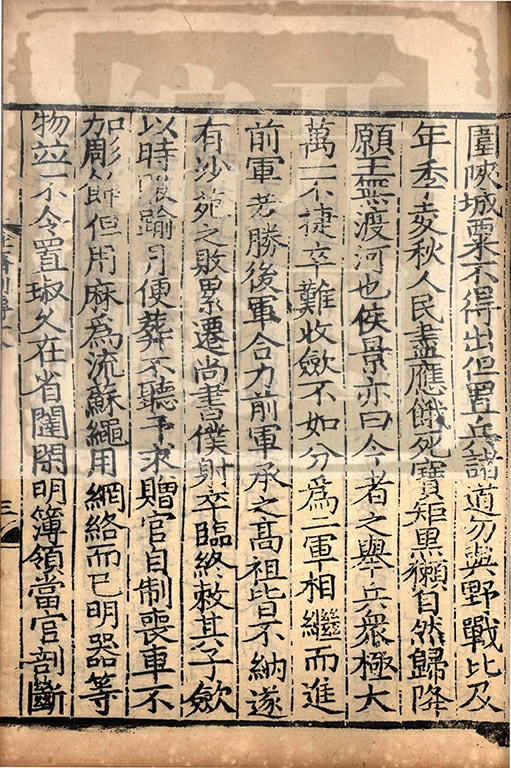 圍陜城粟不得出但置兵諸道勿與野戰比及
年麥秋人民盡應餓死寳炬黒獺自然歸降
願王無渡河也侯景亦曰今者之舉兵衆極大
萬一不捷卒難收斂不如分為二軍相繼而進
前軍若勝後軍合力前軍承之髙祖皆不納遂
有沙苑之敗累遷尚書僕射卒臨終敕其子斂
以時服踰月便葬不聽干求贈官自制喪車不
加彫飾但用麻為流蘇繩用網絡而已明器等
物並不令置琡久在省闥閑明簿領當官剖斷
三